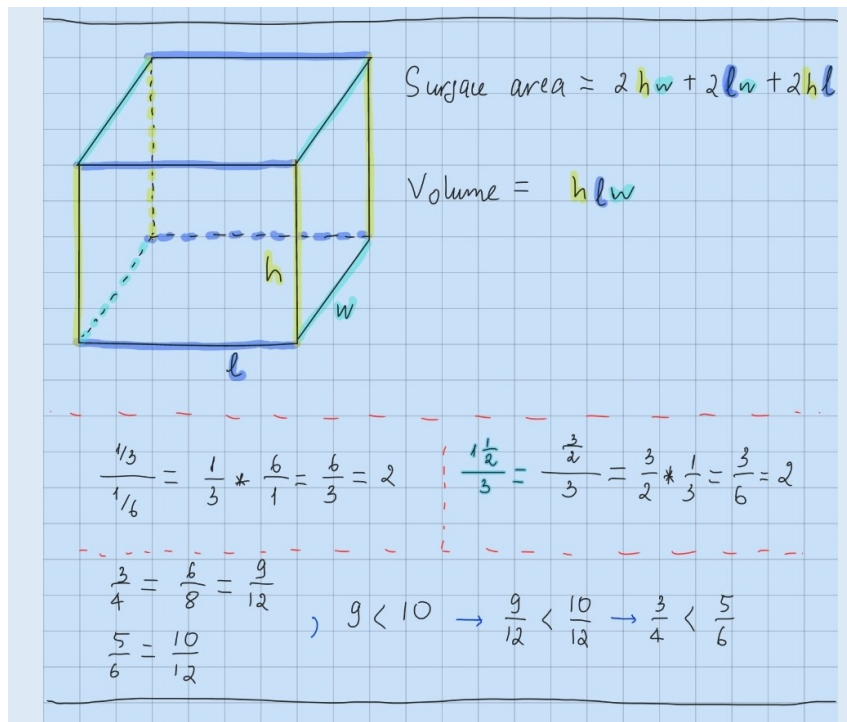 Surface area = 2hw + 2lw + 2hl
Volume = hlw
h
w
l
1/3 / 1/6 = 1/3 * 6/1 = 6/3 = 2
1 1/2 / 3 = 3/2 / 3 = 3/2 * 1/3 = 3/6 = 2
3/4 = 6/8 = 9/12
5/6 = 10/12 , 9 < 10 → 9/12 < 10/12 → 3/4 < 5/6